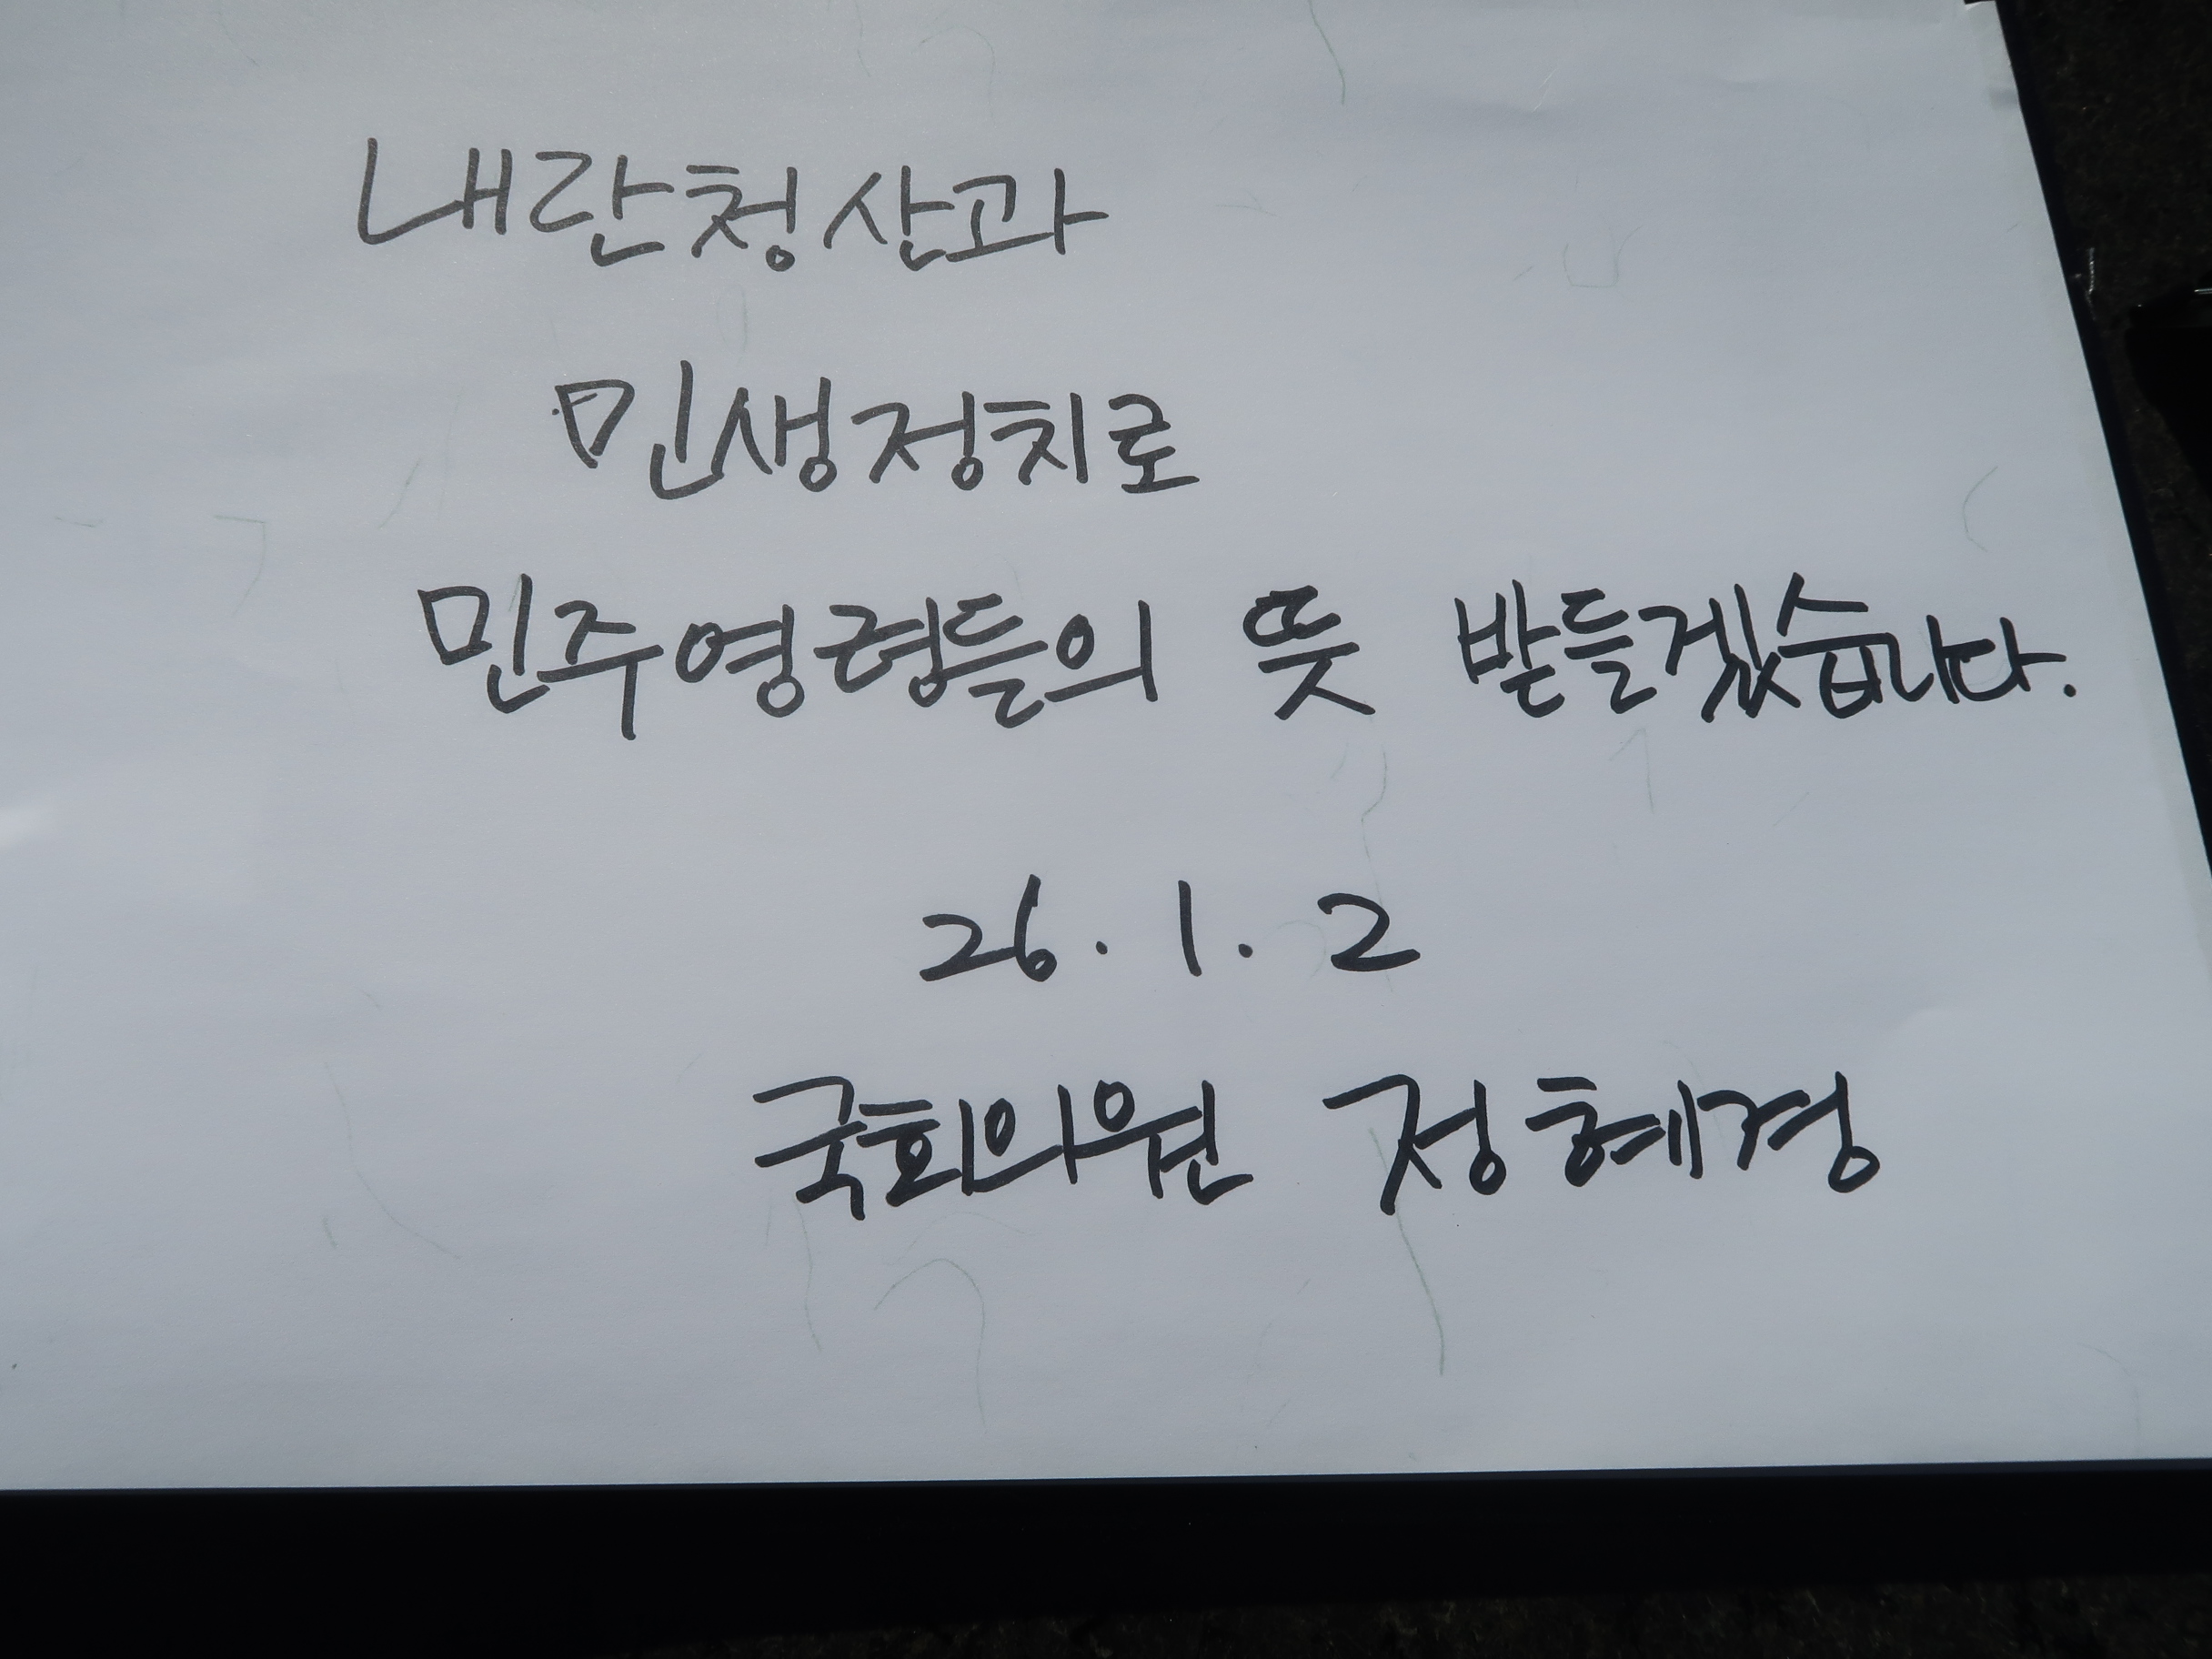 내란청산과
민생정치로
민주영령들의 뜻 받들겠습니다.
26. 1. 2
국회의원 정혜경